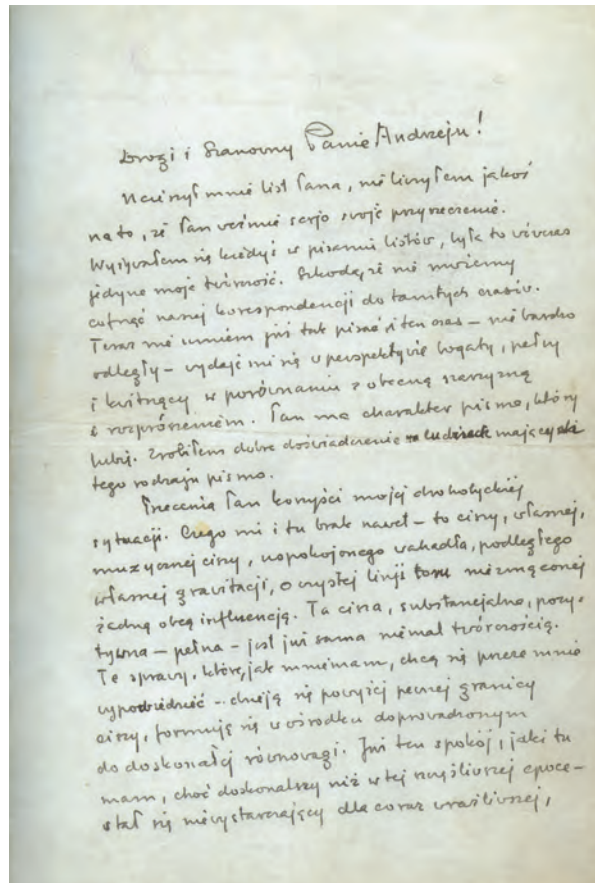 Drogi i Szanowny Panie Andrzeju!
Ucieszył mnie list Pana, nie liczyłem jakoś
na to, że Pan weźmie serjo swoje przyrzeczenie.
Wyżywałem się kiedyś w pisaniu listów, była to wówczas
jedyna moja twórczość. Szkoda, że nie możemy
cofnąć naszej korespondencji do tamtych czasów.
Teraz nie umiem już tak pisać i ten czas – nie bardzo
odległy – wydaje mi się w perspektywie bogaty, pełny
i kwitnący w porównaniu z obecną szarzyzną
i rozprószeniem. Pan ma charakter pisma, który
lubię. Zrobiłem dobre doświadczenie na ludziach mających
tego rodzaju pismo.
Przecenia Pan korzyści mojej drohobyckiej
sytuacji. Czego mi i tu brak nawet – to ciszy, własnej,
muzycznej ciszy, uspokojonego wahadła, podległego
własnej grawitacji, o czystej linji toru niezmąconej
żadną obcą influencją. Ta cisza, substancjalna, pozy-
tywna – pełna – jest już sama niemal twórczością.
Te sprawy, które, jak mniemam, chcą się przeze mnie
wypowiedzieć – dzieją się powyżej pewnej granicy
ciszy, formują się w ośrodku doprowadzonym
do doskonałej równowagi. Już ten spokój, jaki tu
mam, choć doskonalszy niż w tej szczęśliwszej epoce –
stał się niewystarczający dla coraz wrażliwszej,